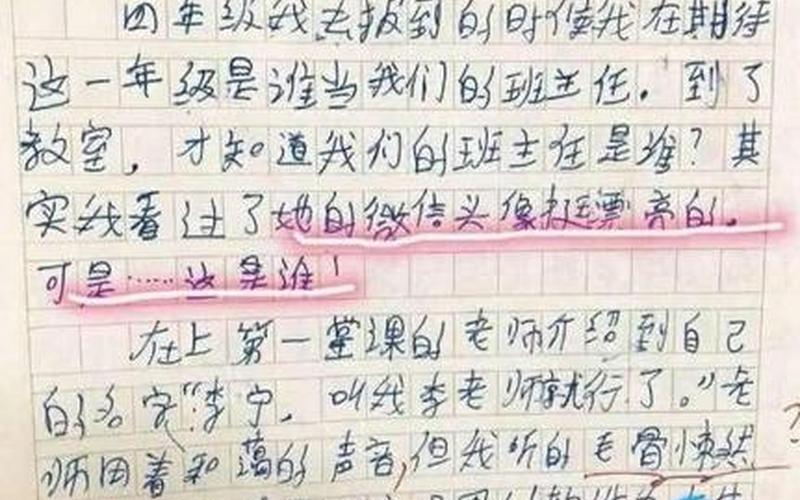 四年级我去报到的时候我在期待
这一年级是谁当我们的班主任。到了
教室，才知道我们的班主任是谁？其
实我看过了她的微信头像挺漂亮的。
可是……这是谁！
在上第一堂课的老师介绍到自己
的名字“李宁。叫我李老师就行了。”老
师用着和蔼的声音，但我听的毛骨悚然